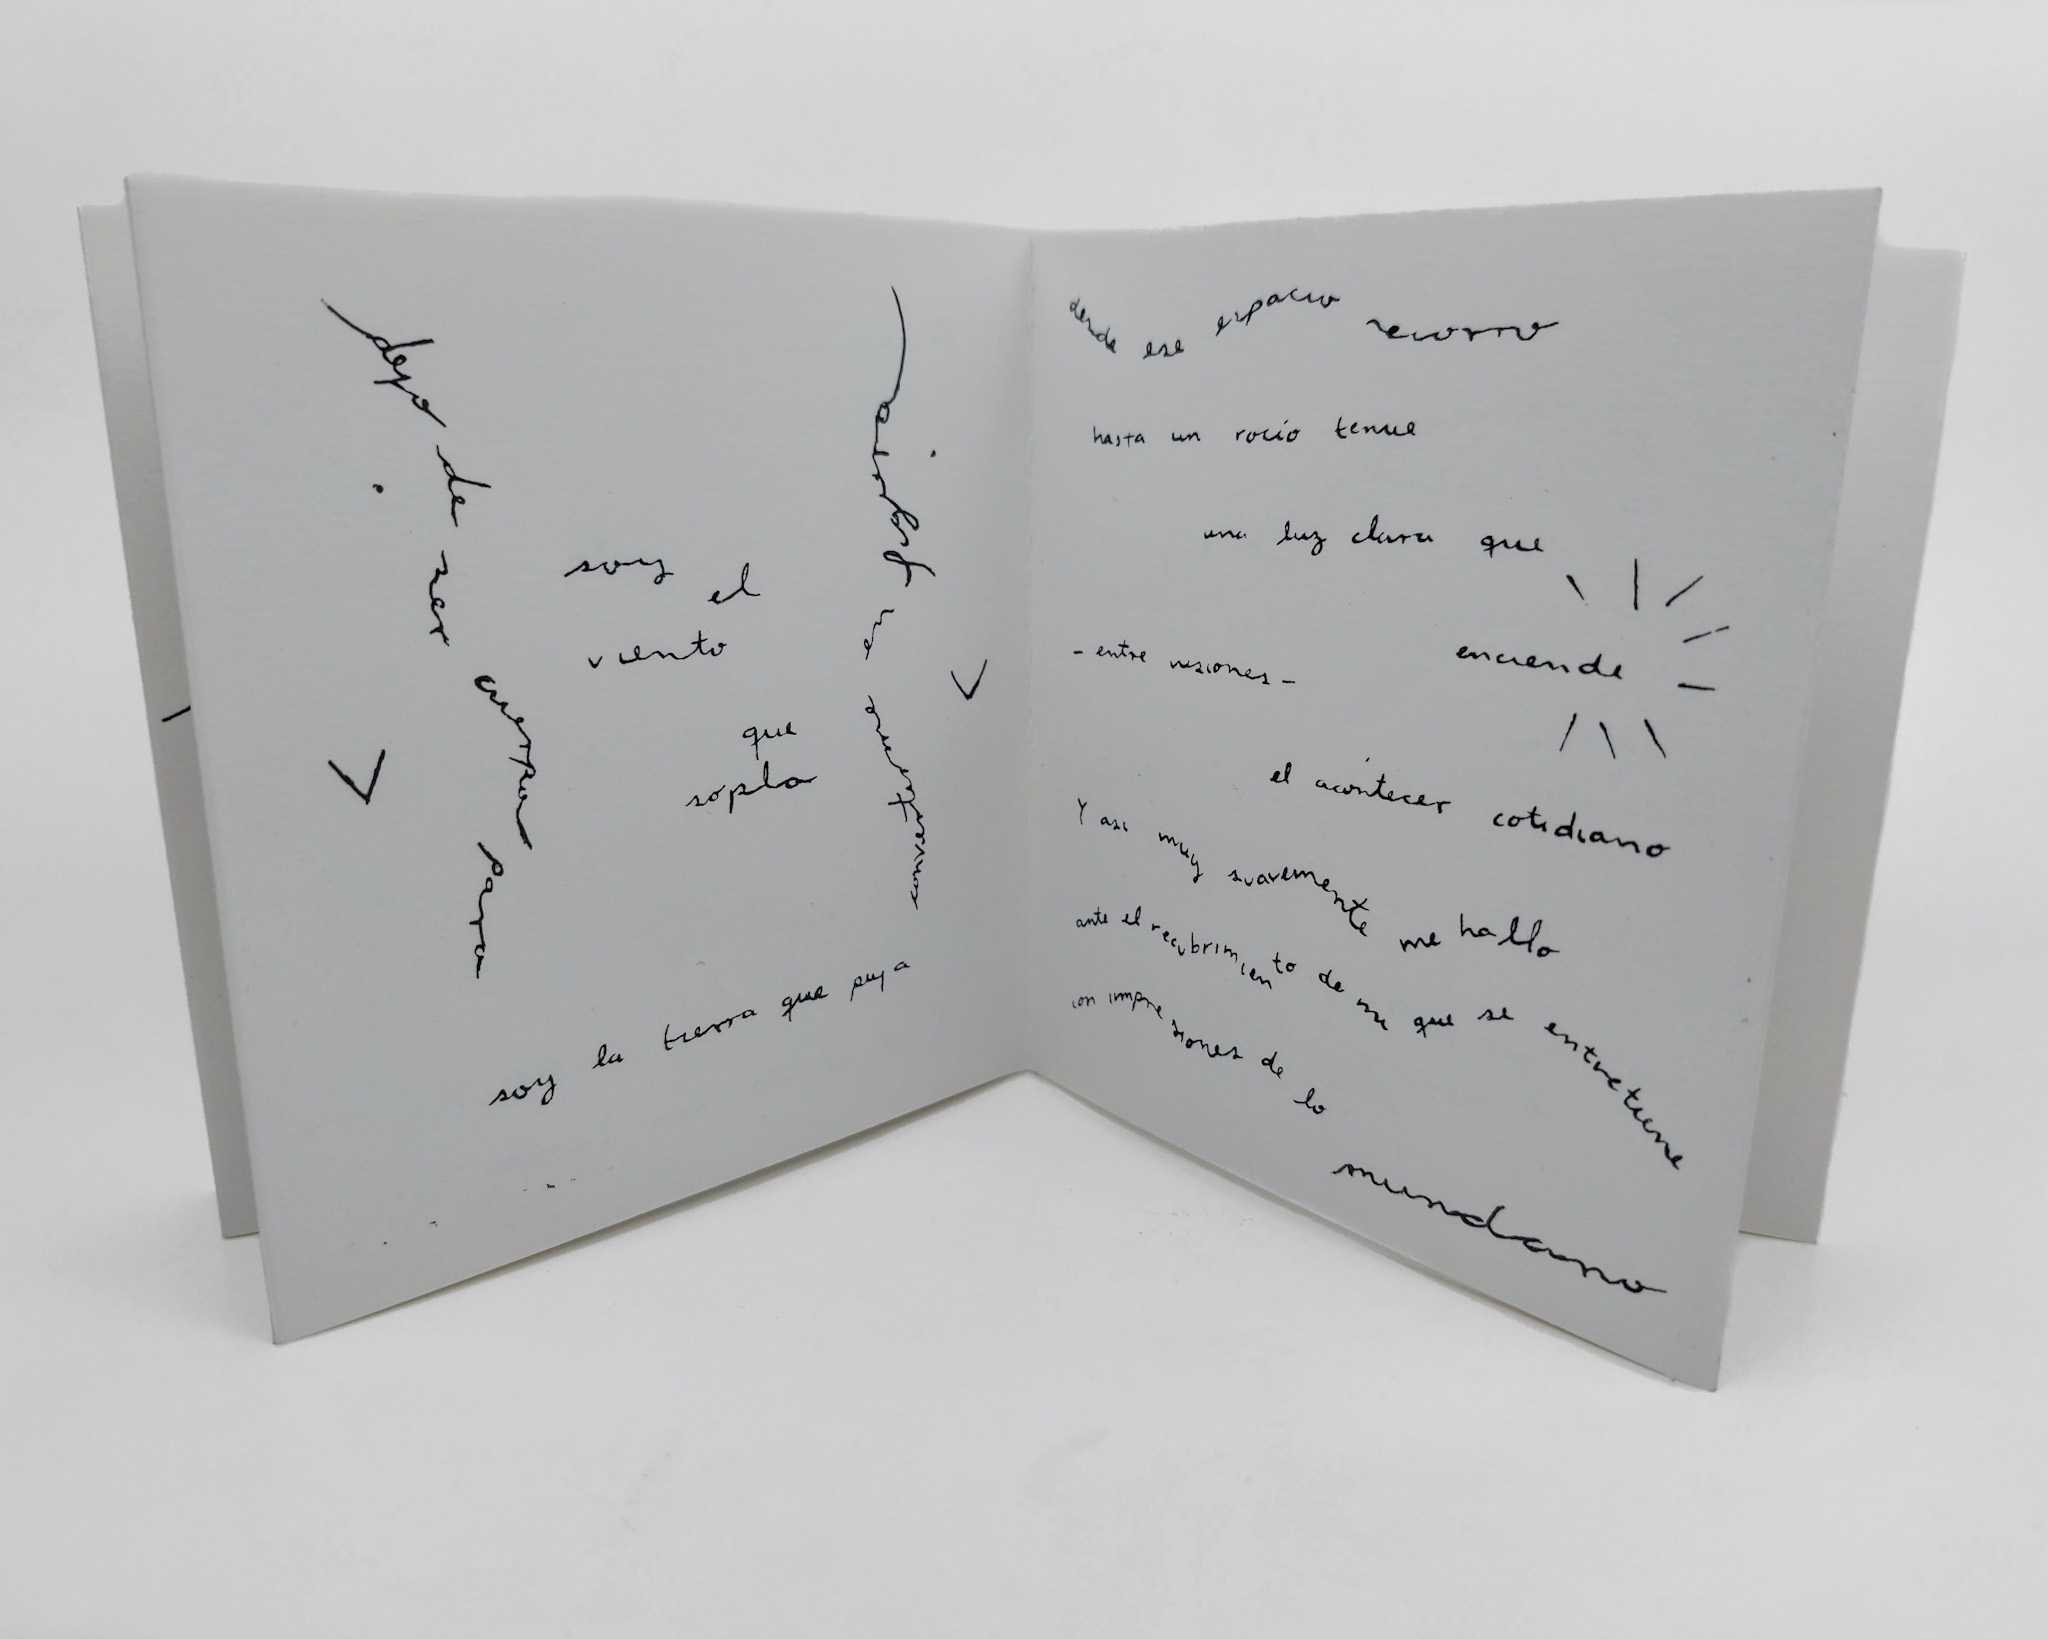 dejo de ser cuerpo para
soy el
viento
que
sopla
en
soy la tierra que puja
desde ese espacio recorro
hasta un rocío tenue
una luz clara que
enciende
- entre visiones -
el acontecer cotidiano
Y asi muy suavemente me hallo
ante el recubrimiento de mi que se entretiene
con impresiones de lo
mundano